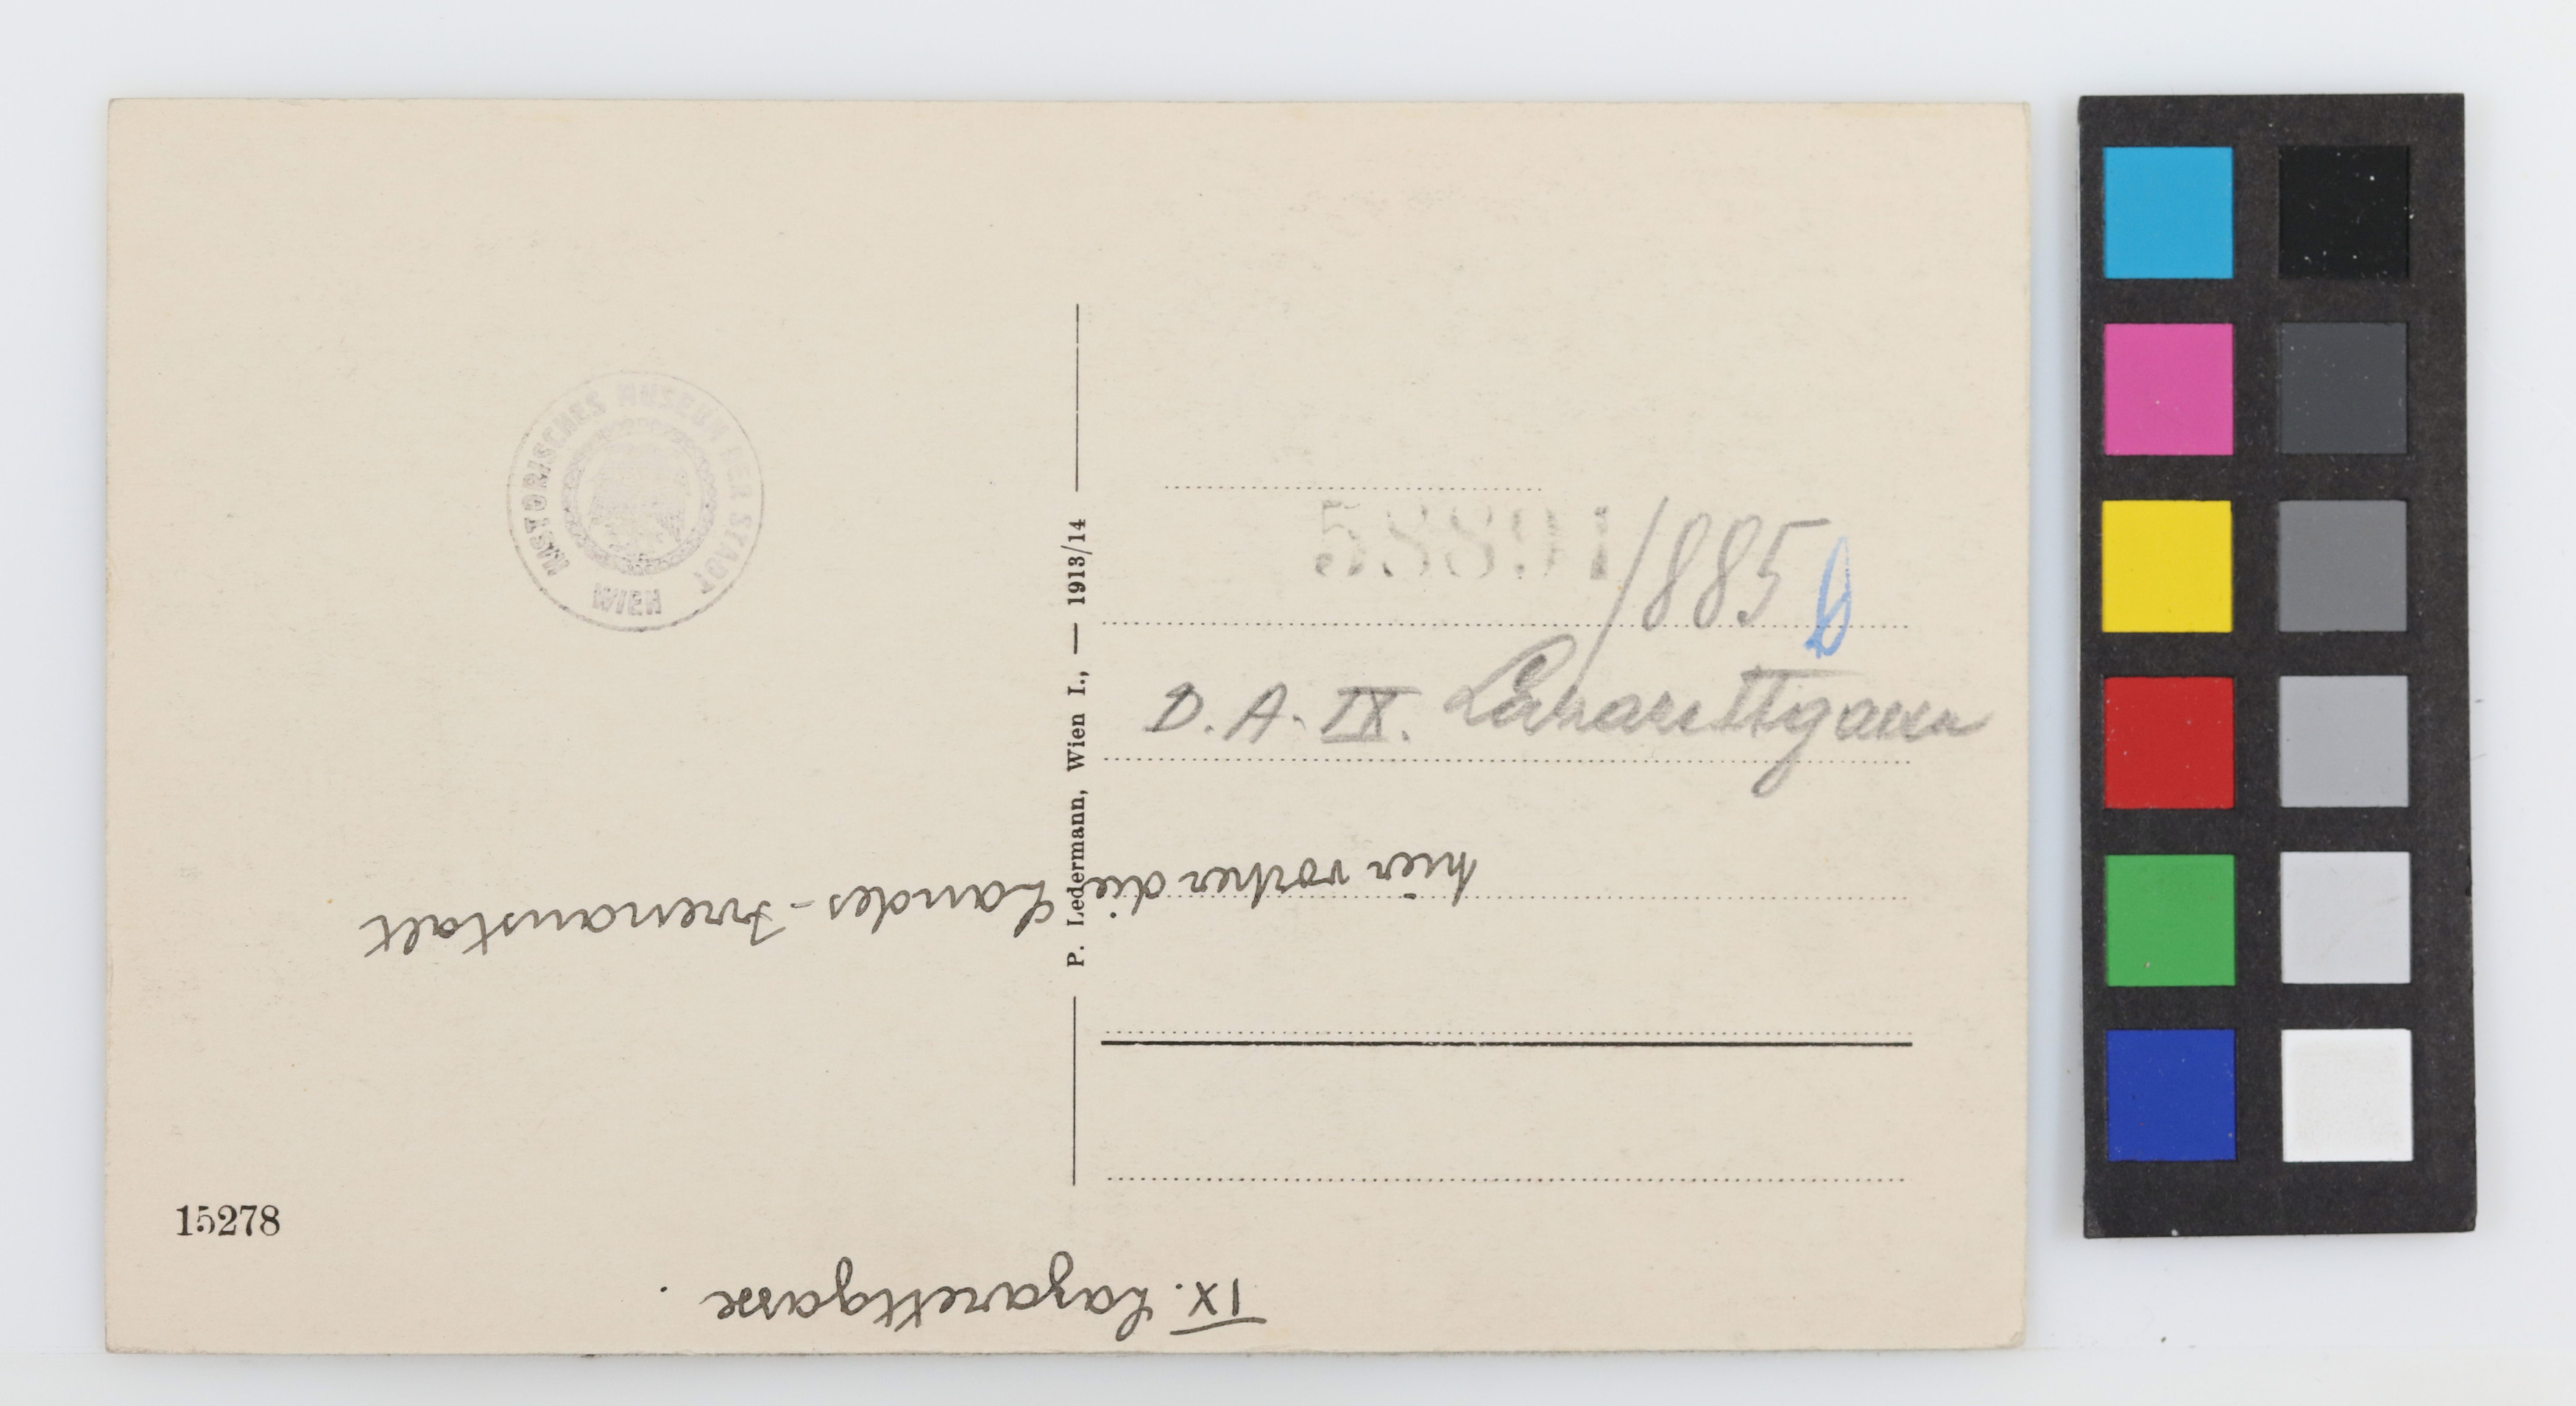 HISTORISCHES MUSEUM DER STADT
WIEN
P. Ledermann, Wien I., — 1913/14
58891/885
D. A. IX. Lazarettgasse
hier vorher die Landes-Irrenanstalt
15278
IX. Lazarettgasse.